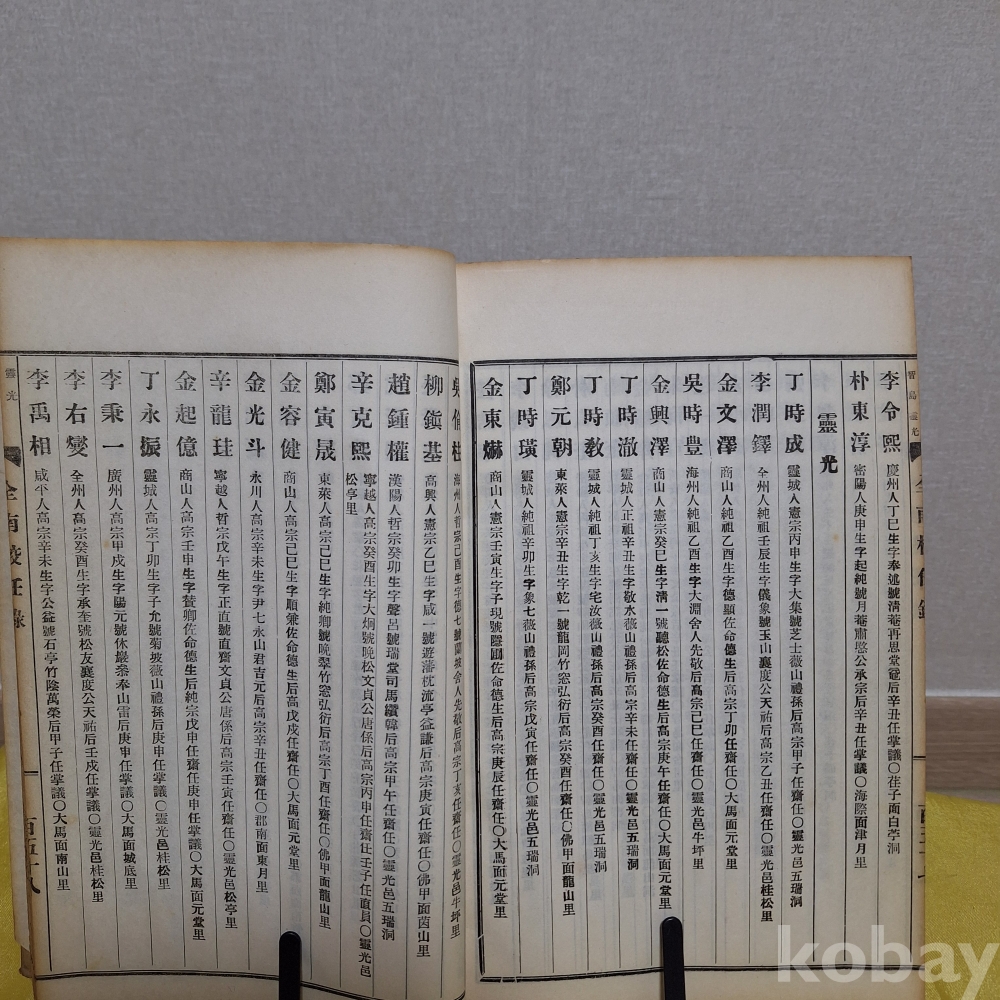 李令熙 慶州人丁巳生字奉述號淸菴再思堂黿后辛丑任掌議〇荏子面白苧洞
朴東淳 密陽人庚申生字起純號月菴肅愍公承宗后辛丑任掌議〇海際面津月里
靈光
丁時成 靈城人憲宗丙申生字大集號芝士薇山禮孫后高宗甲子任齋任〇靈光邑五瑞洞
李潤鐸 全州人純祖壬辰生字儀象號玉山襄度公天祐后高宗乙丑任齋任〇靈光邑桂松里
金文澤 商山人憲宗己酉生字德顯佐命德生后高宗丁卯任齋任〇大馬面元堂里
吳時豊 海州人純祖乙酉生字大淵舍人先敬后高宗己巳任齋任〇靈光邑牛坪里
金興澤 商山人憲宗己酉生字淸一號聽松佐命德生后高宗庚午任齋任〇大馬面元堂里
丁時澈 靈城人正祖辛丑生字敬水薇山禮孫后高宗辛未任齋任〇靈光邑五瑞洞
丁時敎 靈城人純祖丁亥生字宅汝薇山禮孫后高宗癸酉任齋任〇靈光邑五瑞洞
鄭元朝 東萊人憲宗辛丑生字乾一號龍岡竹窓弘衍后高宗癸酉任齋任〇佛甲面龍山里
丁時璜 靈城人純祖辛卯生字象七薇山禮孫后高宗戊寅任齋任〇靈光邑五瑞洞
金東爀 商山人憲宗壬寅生字子現號隱圃佐命德生后高宗庚辰任齋任〇大馬面元堂里
海州人哲宗己酉生字德七號蘭坡舍人先敬后高宗丁亥任齋任〇靈光邑牛坪里
柳鎭基 高興人憲宗乙巳生字咸一號遊藩枕流亭益謙后高宗庚寅任齋任〇佛甲面茵山里
趙鍾權 漢陽人哲宗癸卯生字聲呂號瑞堂司馬纘韓后高宗甲午任齋任〇靈光邑五瑞洞
辛克熙 寧越人高宗癸酉生字大炯號晩松文貞公唐係后高宗丙申任齋任壬子任直員〇靈光邑
松亭里
鄭寅晟 東萊人高宗己巳生字純卿號晩翠竹窓弘衍后高宗丁酉任齋任〇佛甲面龍山里
金容健 商山人高宗己巳生字順兼佐命德生后高宗戊戌任齋任〇大馬面元堂里
金光斗 永川人高宗辛未生字尹七永山君吉元后高宗辛丑任齋任〇郡南面東月里
辛龍珪 寧越人哲宗戊午生字正直號直齋文貞公唐係后高宗壬寅任齋任〇靈光邑松亭里
金起億 商山人高宗壬申生字贊卿佐命德生后純宗戊申任齋任庚申任掌議〇大馬面元堂里
丁永振 靈城人高宗丁卯生字子允號菊坡薇山禮孫后庚申任掌議〇靈光邑桂松里
李秉一 廣州人高宗甲戌生字陽元號休巖叅奉山雷后庚申任掌議〇大馬面城底里
李右燮 全州人高宗癸酉生字承奎號松友襄度公天祐后壬戌任掌議〇靈光邑桂松里
李禹相 咸平人高宗辛未生字公益號石亭竹陰萬榮后甲子任掌議〇大馬面南山里
靈光
全南校任錄
百五十八
kobay